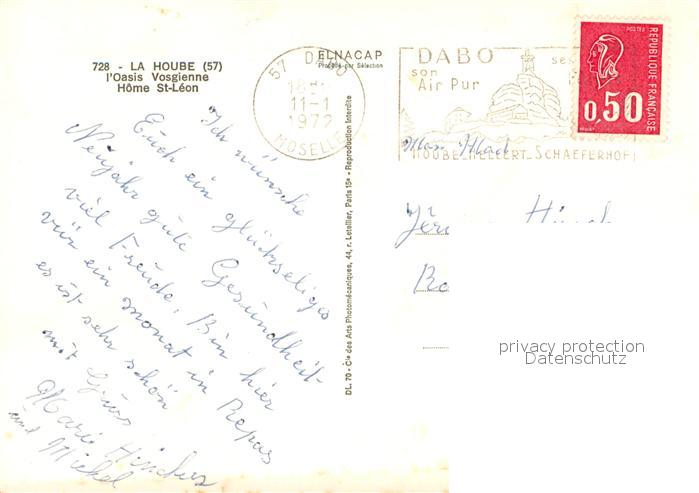 728 - LA HOUBE (57)
l'Oasis Vosgienne
Hôme St-Léon
ELNACAP
Procédé par Sélection
57 DABO
18H
11-1
1972
MOSELLE
DABO
son
Air Pur
ses
HOUBE-HELLERT-SCHAEFERHOF
POSTES
RÉPUBLIQUE FRANÇAISE
0,50
Ich wünsche
Euch ein glückseliges
Neujahr gute Gesundheit-
viel Freude, Bin hier
vür ein monat in Repas
es ist sehr schön
mit Grüss
Marie
und Mickel
DL. 70 - Cie des Arts Photomécaniques, 44, r. Letellier, Paris 15e - Reproduction Interdite
privacy protection
Datenschutz